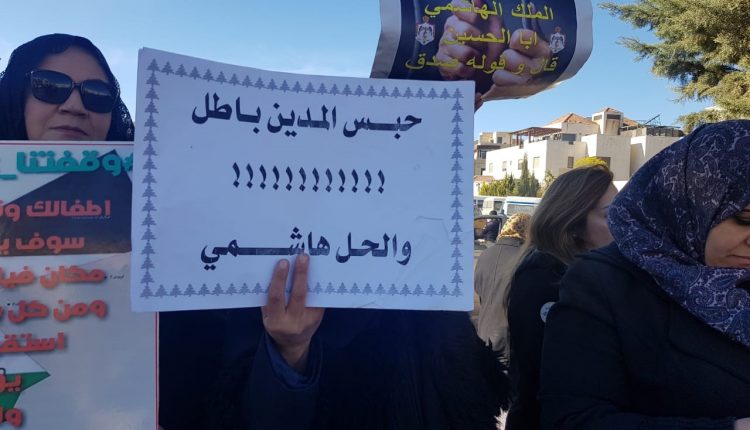 الملك الهاشمي
ابا الحسين
قال وقوله صدق
حبس المدين باطل
!!!!!!!!!!!!
والحل هاشمي
وقفتنا_
اطفالك
سوف
مكان
ومن كل